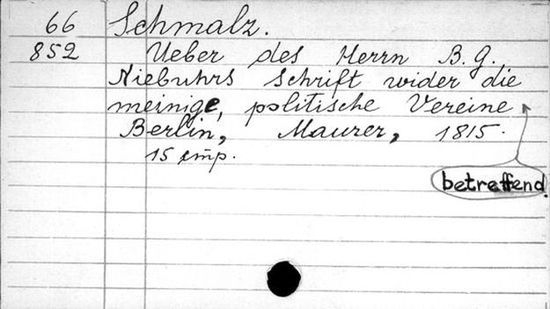 66 Schmalz.
852 Ueber des Herrn B. G.
Niebuhrs Schrift wider die
meinige, politische Vereine
Berlin, Maurer, 1815.
15 cmp.
betreffend.